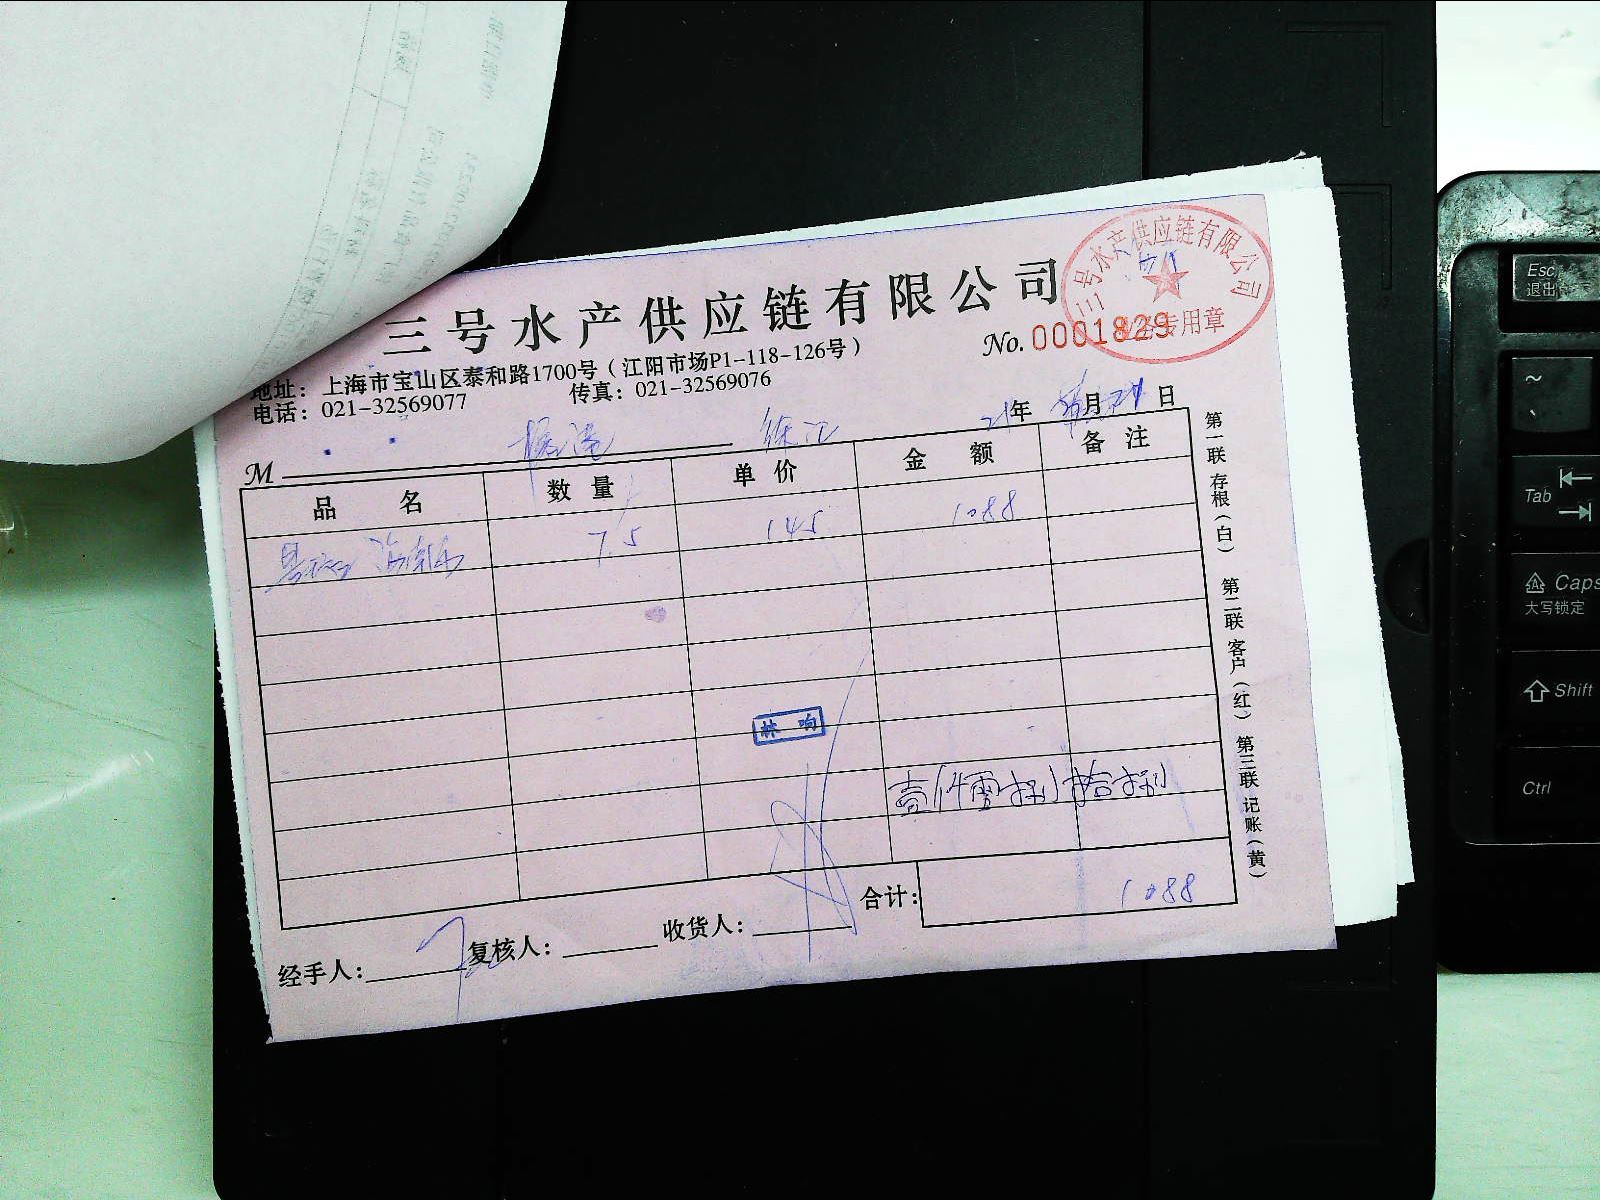 三号水产供应链有限公司
三号水产供应链有限公司
专用章
No. 0001829
地址：上海市宝山区泰和路1700号（江阳市场P1-118-126号）
电话：021-32569077 传真：021-32569076
21年 月 日
M 徐汇
品 名 数 量 单 价 金 额 备 注
7.5 145 1088
林 响
壹仟零捌拾捌
合计： 1088
经手人： 复核人： 收货人：
第一联 存根（白） 第二联 客户（红） 第三联 记账（黄）
Esc
退出
~
Tab
Caps
大写锁定
Shift
Ctrl